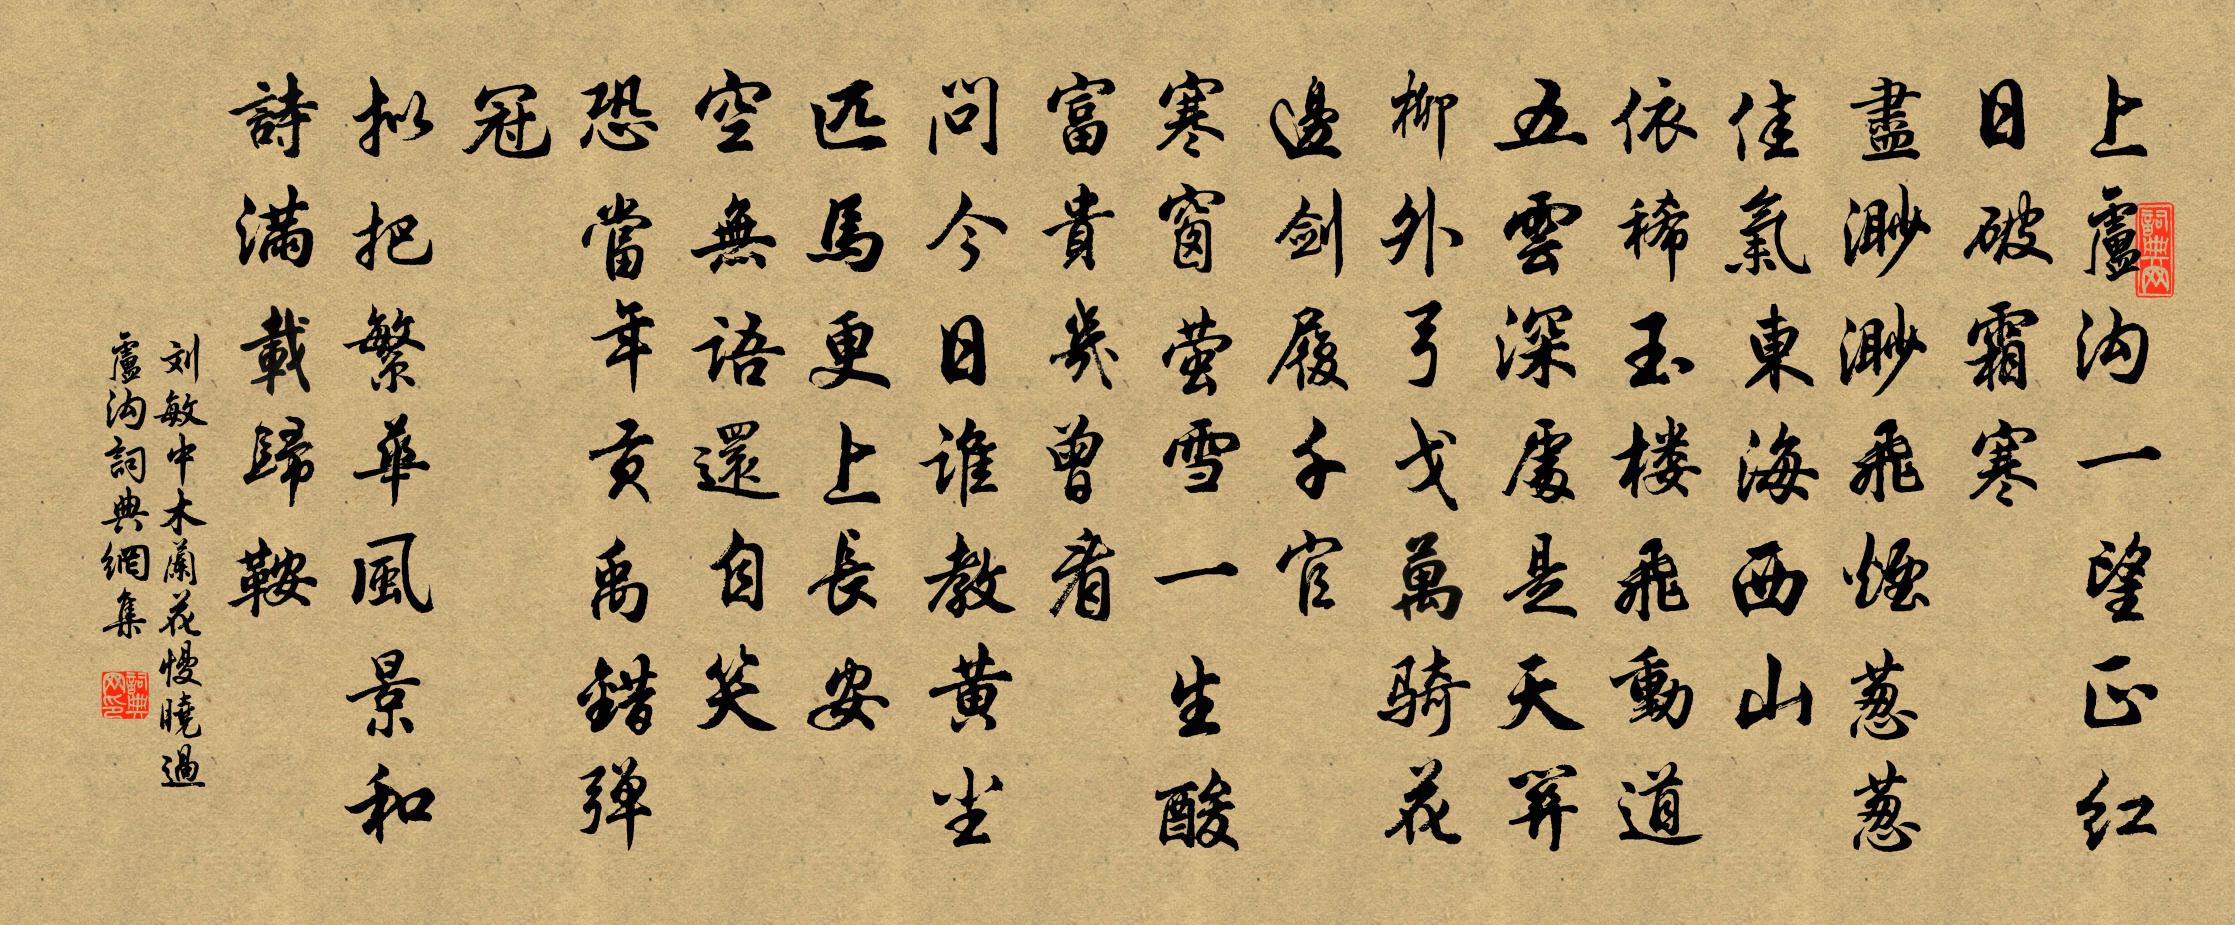 上盧沟一望正红
日破霜寒
盡渺渺飛煙葱葱
佳氣東海西山
依稀玉楼飛動道
五雲深處是天関
柳外弓戈萬騎花
邊劍履千官
寒窗萤雪一生酸
富貴幾曾看
问今日谁教黄尘
匹馬更上長安
空無语還自笑
恐當年贡禹錯弹
冠
拟把繁華風景和
詩满載歸鞍
刘敏中木蘭花慢曉過
盧沟詞典網集
詞典网
詞典网印